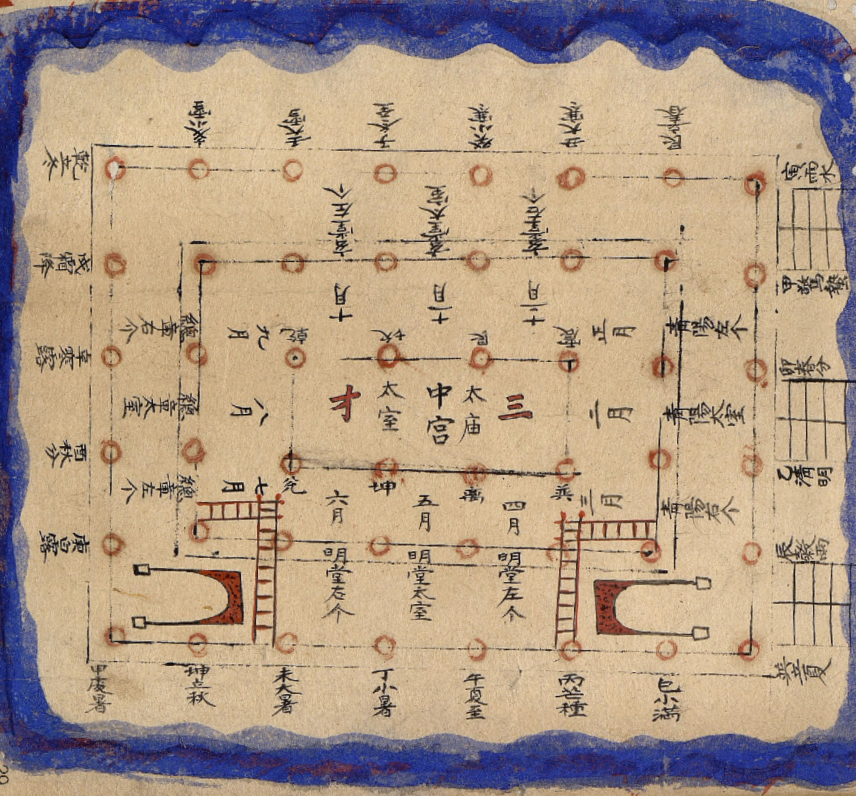 亥小雪
壬大雪
子冬至
癸小寒
丑大寒
艮立春
乾立冬
寅雨水
玄堂左个
玄堂太室
玄堂右个
戌霜降
甲驚蟄
十月
十一月
十二月
辛寒露
總章右个
九月
乾
坎
艮
震
正月
青陽左个
卯春分
三
太庙
中宮
太室
才
酉秋分
總章太室
八月
二月
青陽太室
乙清明
總章左个
七月
兌
坤
離
巽
三月
青陽右个
四月
五月
六月
庚白露
辰穀雨
明堂左个
明堂太室
明堂右个
巽立夏
巳小滿
丙芒種
午夏至
丁小暑
未大暑
坤立秋
申處暑